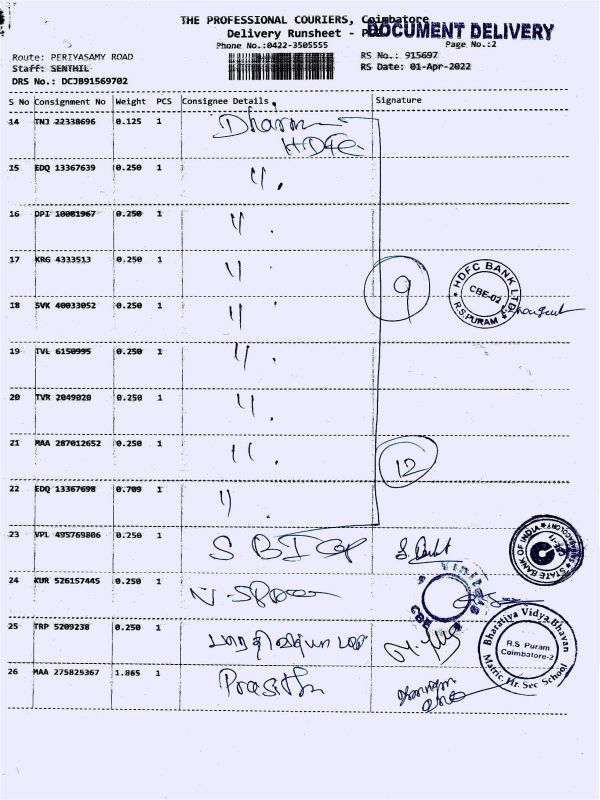 THE PROFESSIONAL COURIERS, Coimbatore
Delivery Runsheet -
DOCUMENT DELIVERY
Phone No.:0422-3505555
Page No.:2
Route: PERIYASAMY ROAD
RS No.: 915697
Staff: SENTHIL
RS Date: 01-Apr-2022
DRS No.: DCJB91569702
S No Consignment No Weight PCS Consignee Details Signature
14 TNJ 22338696 0.125 1 Dharm
HDFC
15 EDQ 13367639 0.250 1 "
16 DPI 10081967 0.250 1 "
17 KRG 4333513 0.250 1 "
9
HDFC BANK LTD
CBE-02
R.S.PURAM
18 SVK 40033052 0.250 1 "
19 TVL 6150995 0.250 1 "
20 TVR 2049020 0.250 1 "
21 MAA 287012652 0.250 1 "
12
22 EDQ 13367698 0.709 1 "
23 VPL 495769806 0.250 1 SBI
STATE BANK OF INDIA
24 KUR 526157445 0.250 1
25 TRP 5209238 0.250 1
Bharatiya Vidya Bhavan
R.S Puram
Coimbatore-2
Matric. Hr. Sec School
26 MAA 275825367 1.865 1 Prasith